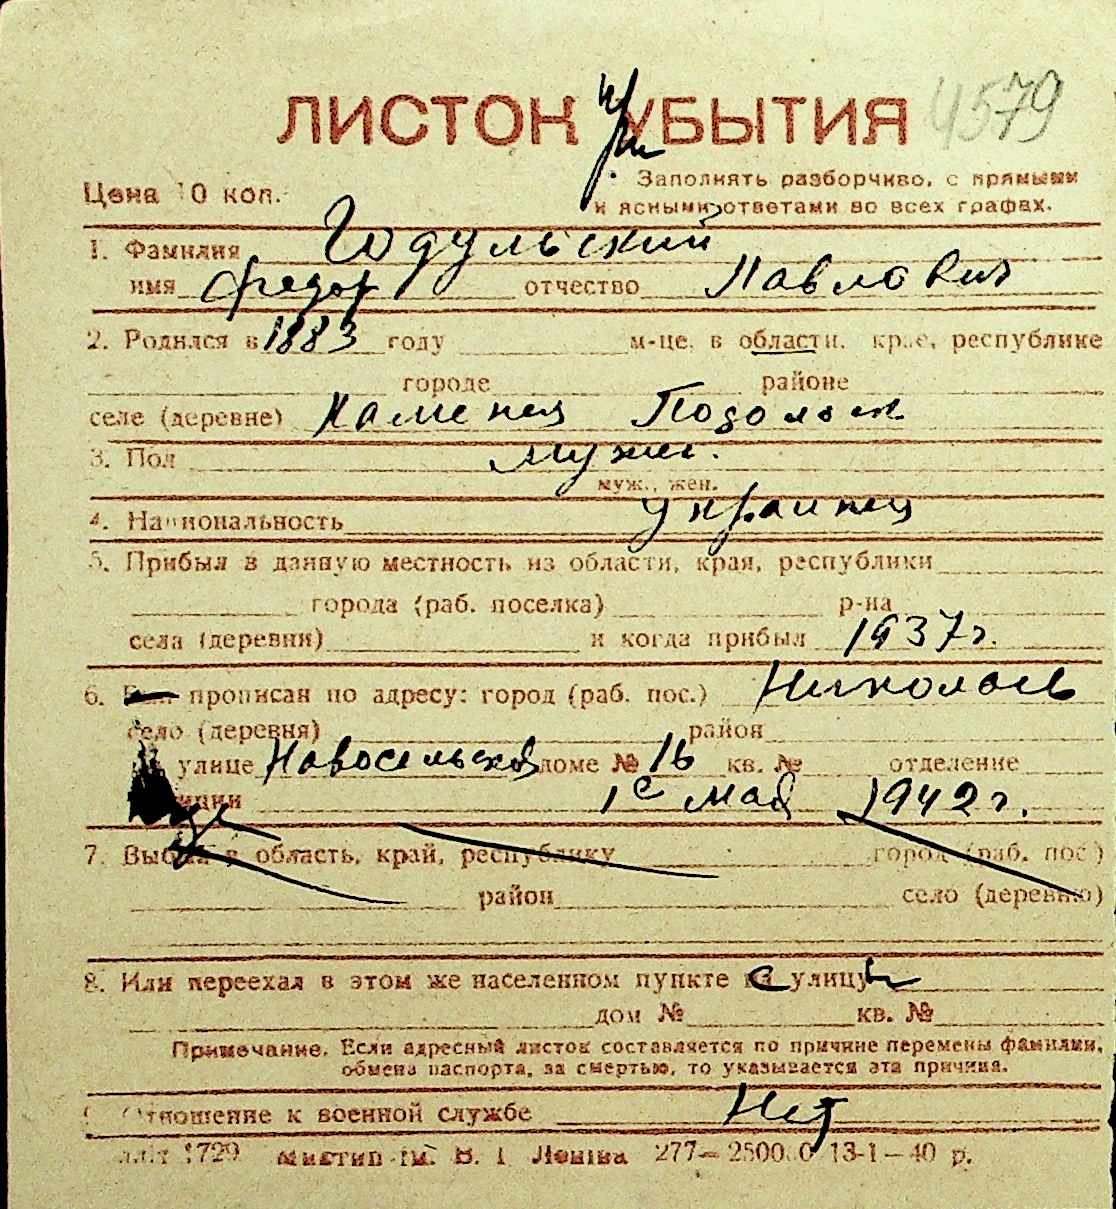 4579
ЛИСТОК УБЫТИЯ
Цена 10 коп.
Заполнять разборчиво, с прямыми
и ясными ответами во всех графах.
1. Фамилия Годульский
имя Федор отчество Павлович
2. Родился в 1883 году м-це, в области, крае, республике
городе районе
селе (деревне) Каменец Подольск
3. Пол мужск.
муж., жен.
4. Национальность украинец
5. Прибыл в данную местность из области, края, республики
города (раб. поселка) р-на
села (деревни) и когда прибыл 1937 г.
6. Был прописан по адресу: город (раб. пос.) Николаев
село (деревня) район
улице Новосельская доме № 16 кв. № отделение
милиции 1е мая 1942 г.
7. Выбыл в область, край, республику город (раб. пос.)
район село (деревню)
8. Или переехал в этом же населенном пункте с улицы
дом № кв. №
Примечание. Если адресный листок составляется по причине перемены фамилии,
обмена паспорта, за смертью, то указывается эта причина.
9. Отношение к военной службе Нет
1729 Миктип ім. В. І Леніна 277—250000 13-1—40 р.